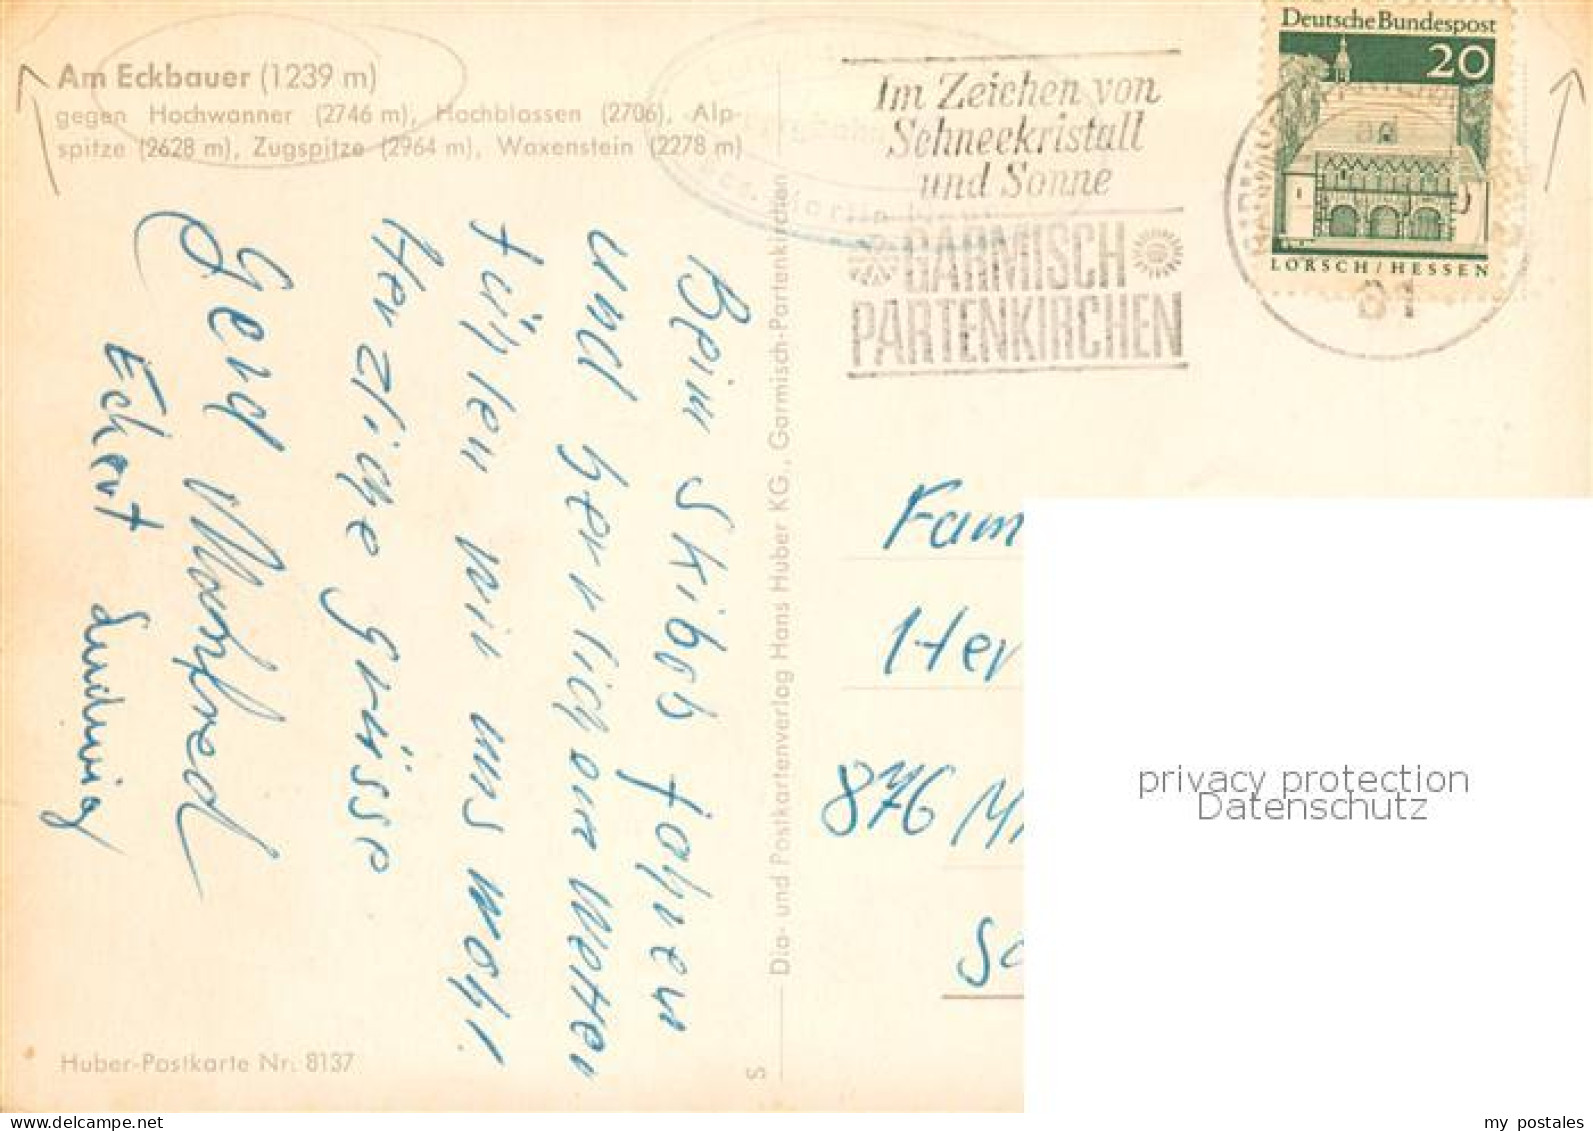 Am Eckbauer (1239 m)
gegen Hochwanner (2746 m), Hochblassen (2706), Alp-
spitze (2628 m), Zugspitze (2964 m), Waxenstein (2278 m)
Beim Skibob fahren
und herrlichem Wetter
fühlen wir uns wohl.
Herzliche Grüsse
Gerd Manfred
Eckart Ludwig
Huber-Postkarte Nr. 8137
S
Dia- und Postkartenverlag Hans Huber KG., Garmisch-Partenkirchen
Im Zeichen von
Schneekristall
und Sonne
GARMISCH
PARTENKIRCHEN
Deutsche Bundespost
20
LORSCH/HESSEN
81
Fam
Her
876 M
So
privacy protection
Datenschutz
my postales